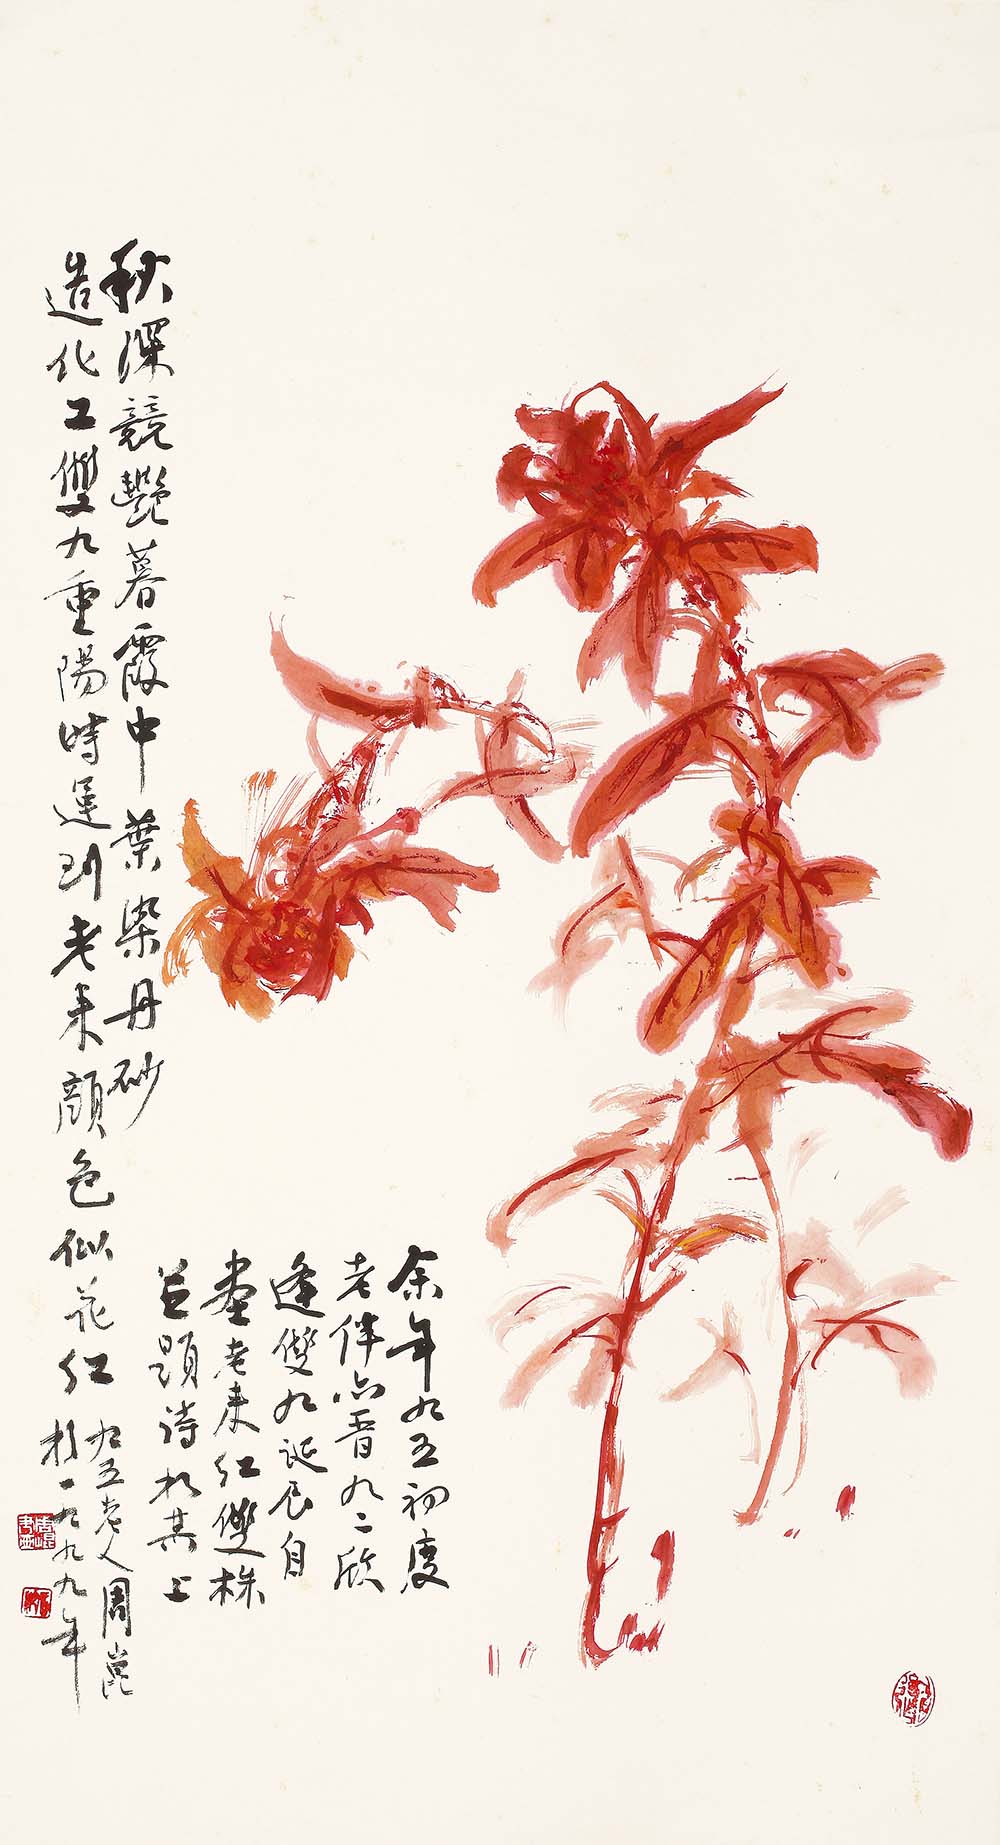 秋深競艷暮霞中葉染丹砂
造化工雙九重陽時運到老來顏色似花紅
九五老人周崑
於一九九九年
余年九五初度
老伴亦晋九二欣
逢雙九誕辰自
畫老來紅雙株
並題詩於其上